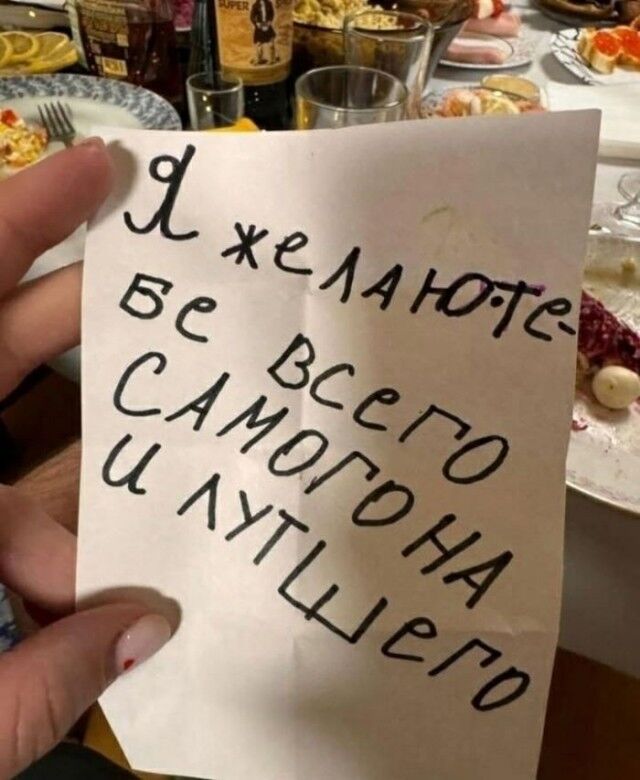 SUPER
Я желаю те-
бе всего
САМОГОНА
и лутшего